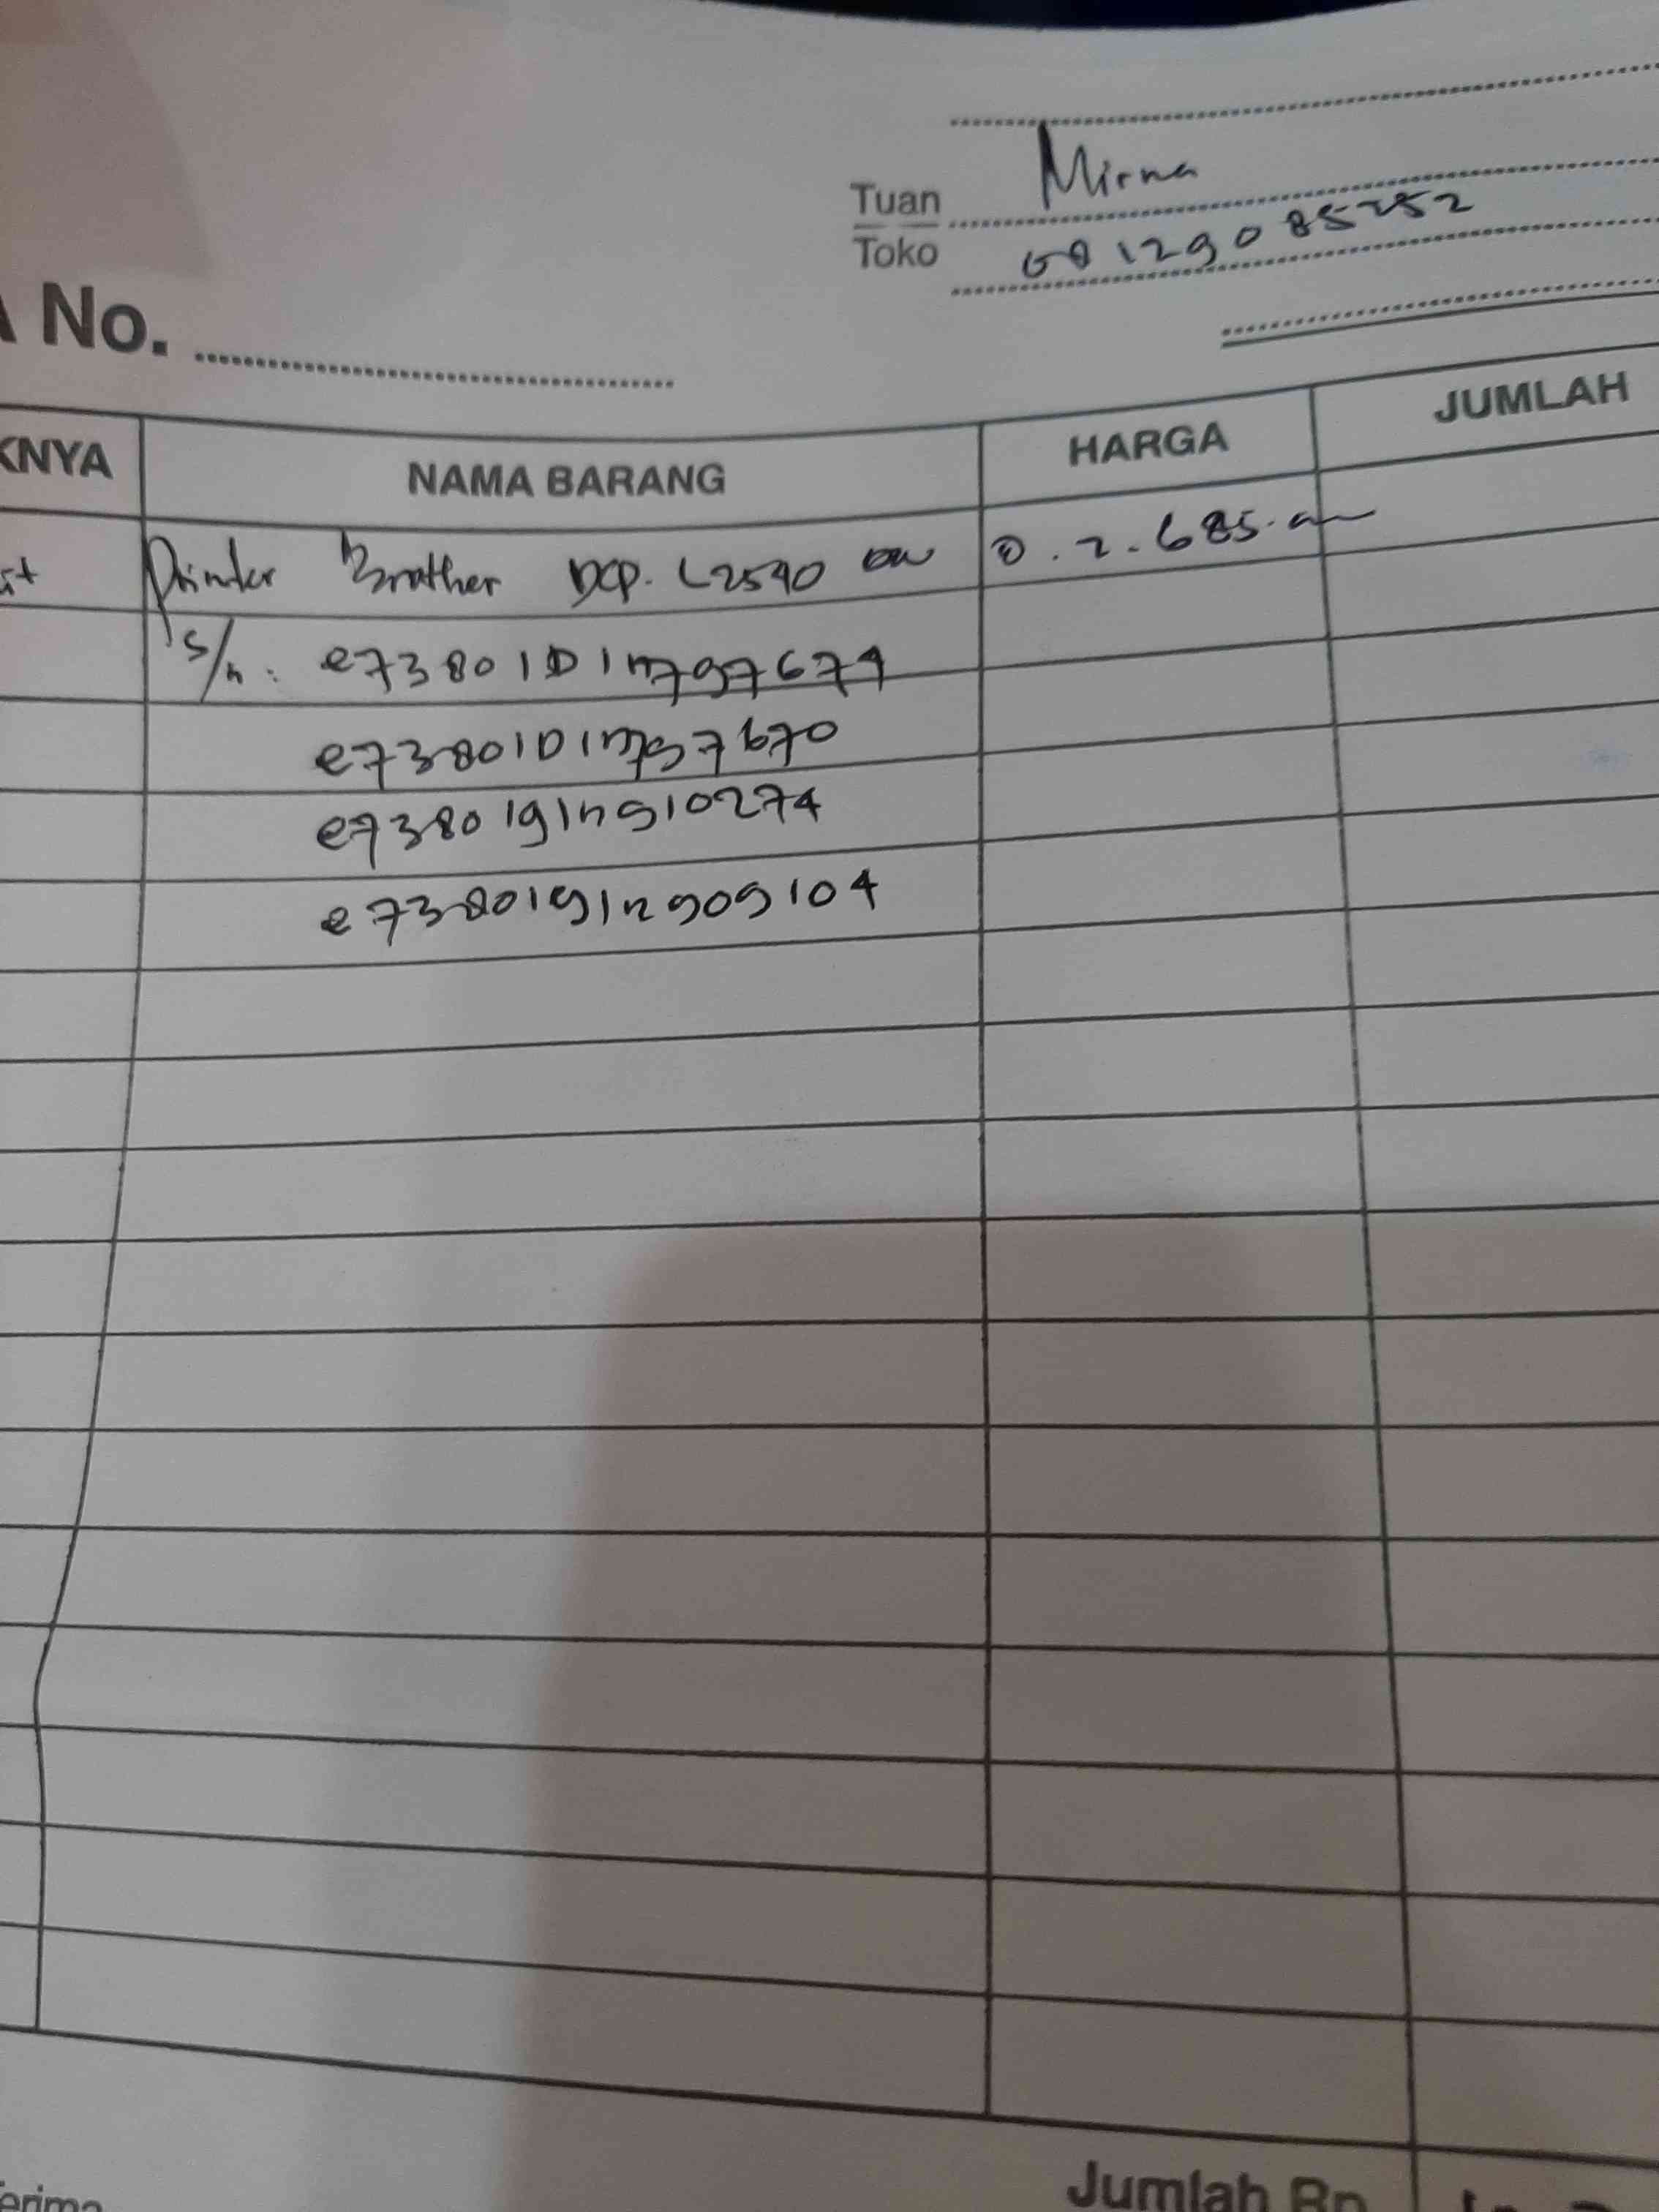 Mirna
Tuan
Toko
08129085252
No.
KNYA NAMA BARANG HARGA JUMLAH
Printer Brother DCP. L2540 DW @. 2.685.
s/n: e73801D1n797674
e73801D1n797670
e7380191n910274
e7380191n909104
Jumlah Rp